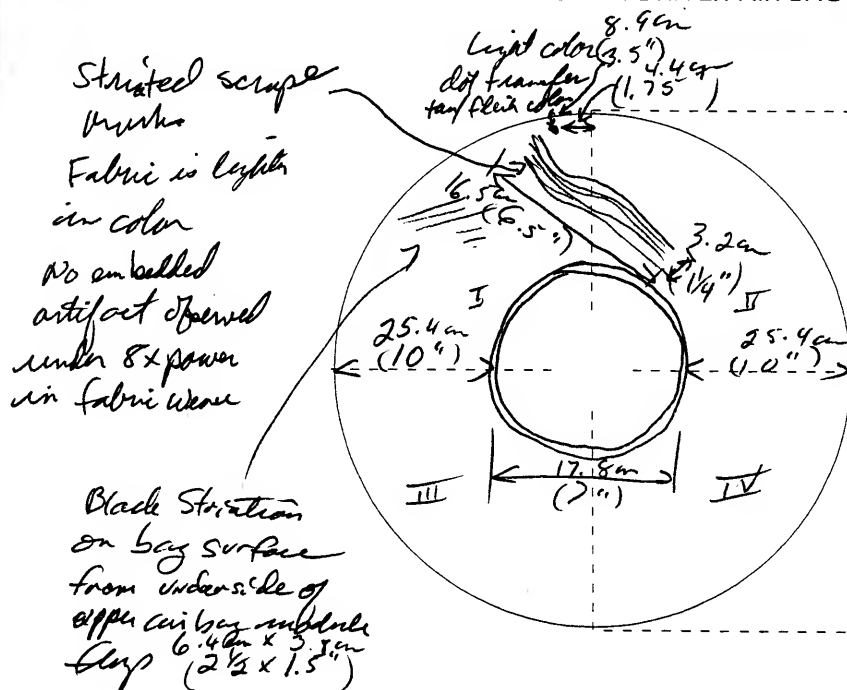 8.9cm
Light color (3.5")
dot transfer 4.4cm
tan/flesh color (1.75")
Striated scrape
marks
Fabric is lighter
in color
No embedded
artifact observed
under 8x power
in fabric weave
16.5cm
(6.5")
3.2cm
(1 1/4")
I
II
25.4cm
(10")
25.4cm
(10")
17.8cm
(7")
III
IV
Black Striation
on bag surface
from underside of
upper air bag module
flap 6.4cm x 3.8cm
(2 1/2 x 1.5")